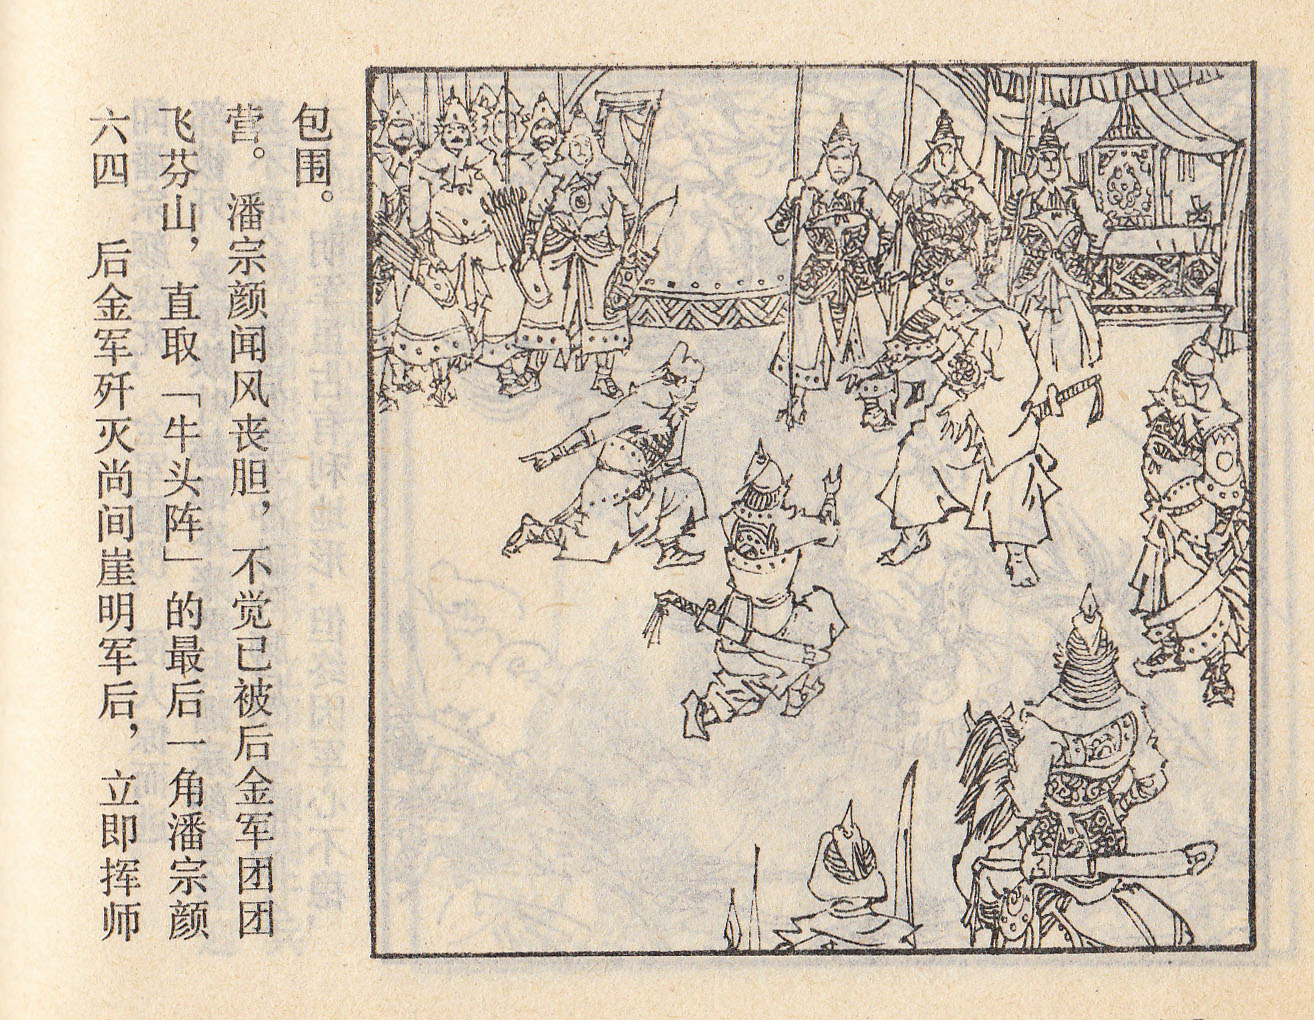 六四　后金军歼灭尚间崖明军后，立即挥师
飞芬山，直取「牛头阵」的最后一角潘宗颜
营。潘宗颜闻风丧胆，不觉已被后金军团团
包围。